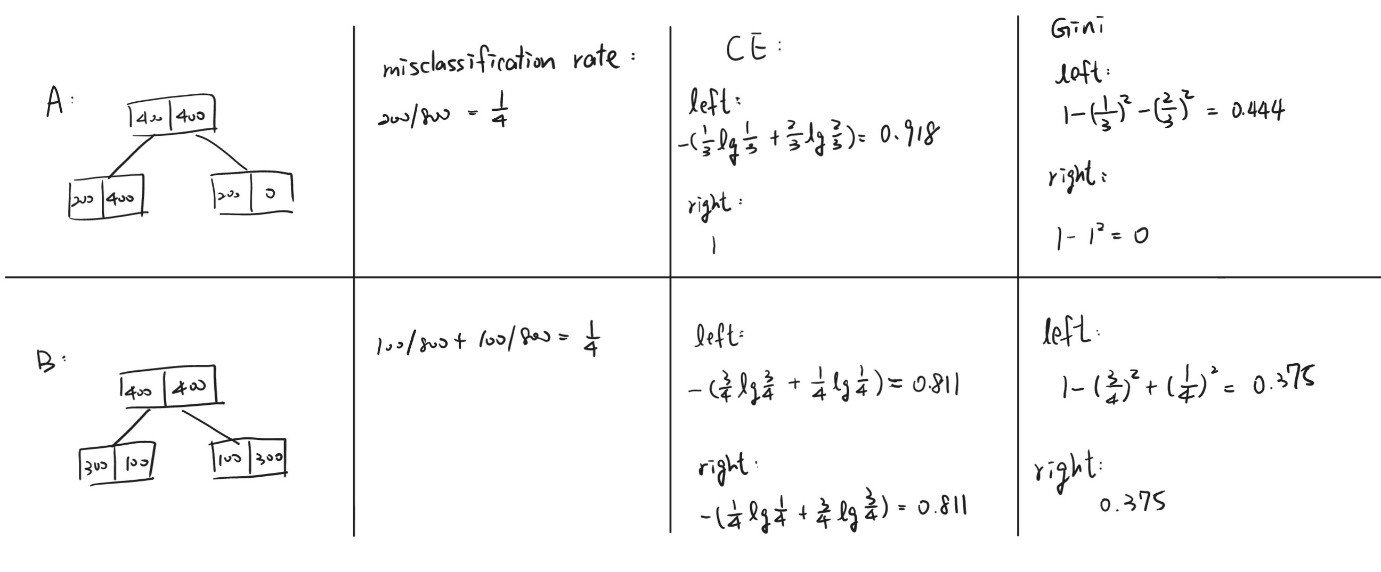 A:
400 | 400
200 | 400
200 | 0
misclassification rate:
200/800 = 1/4
CE:
left:
-(1/3 lg 1/3 + 2/3 lg 2/3) = 0.918
right:
1
Gini
left:
1-(1/3)² - (2/3)² = 0.444
right:
1 - 1² = 0
B:
400 | 400
300 | 100
100 | 300
100/800 + 100/800 = 1/4
left:
-(3/4 lg 3/4 + 1/4 lg 1/4) = 0.811
right:
-(1/4 lg 1/4 + 3/4 lg 3/4) = 0.811
left:
1-(3/4)² + (1/4)² = 0.375
right:
0.375